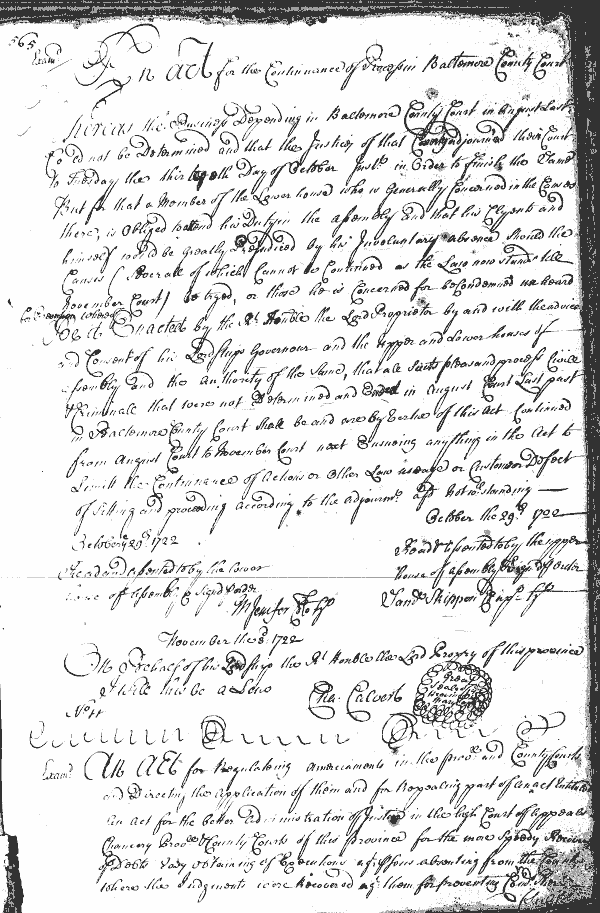 565
Exam.d An Act for the Continuance of Process in Baltemore County Court
Whereas the Business Depending in Baltemore County Court in August Last
Could not be Determined and that the Justices of that County adjourned their Court
to Tuesday the thirtyeth Day of October Inst. in Order to finish the Same
But for that a Member of the Lower house who is Generally Concerned in the Causes
there, is Obliged to attend his Duty in the Assembly and that his Clyents and
himself would be greatly prejudiced by his Involuntary absence should the
Causes (Severall of which Cannot be Continued as the Law now stands till
November Court) be tryed, or those he is Concerned for be Condemned unheard
Be it Enacted by the Rt. Honble the Lord Proprietor by and with the advice
and Consent of his Lordships Governour and the upper and Lower houses of
Assembly and the Authority of the Same, that all Suits pleas and process Civill
Criminall that were not Determined and Ended in August Court Last past
in Baltemore County Court Shall be and are by Vertue of this Act Continued
from August Court to November Court next Ensuing anything in the Act to
Limitt the Continuance of Actions or Other Law usage or Custom or Defect
of Sitting and proceeding according to the Adjournmt. aforesd Notwthstanding
October the 29th 1722
October 29th 1722
Read & assented to by the upper
Read and assented to by the Lower
house of assembly Signd P Order
house of assembly & Signd P order
Saml Skippon
MJenifer
November the 3d 1722
On Behalf of his Lordship the Rt Honble the Lord Propry of this province
I will this be a Law
Cha: Calvert
Great Seale
No. 11
Exam.d An Act for Regulating Amerciaments in the Provl. and County Courts
and Directing the Application of them and for Repealing part of an act Entituled
An act for the better administration of Justice in the high Court of Appeals
Chancery Provl & County Courts of this Province for the more Speedy Recovery
of Debts Easy obtaining of Executions agt. persons absenting from the County
where the Judgments were Recovered agt. them for preventing